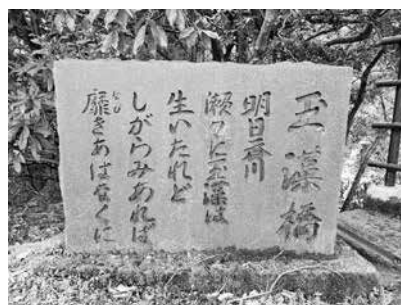 玉藻橋
明日香川
瀬々に玉藻は
生いたれど
しがらみあれば
靡きあはなくに